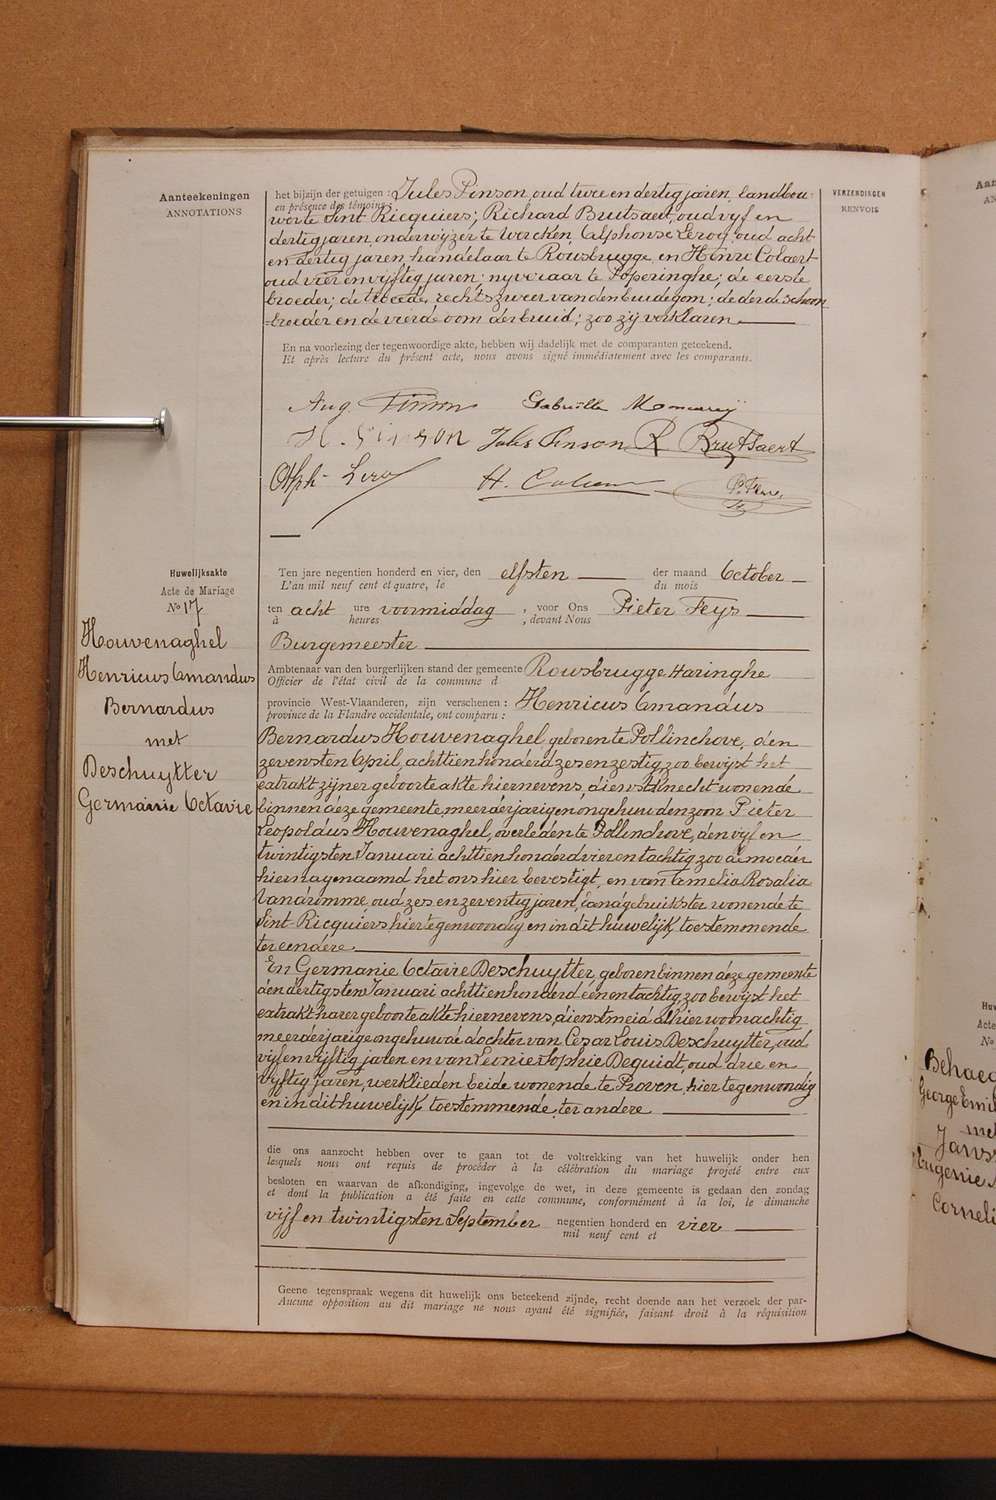 Aanteekeningen
ANNOTATIONS
VERZENDINGEN
RENVOIS
het bijzijn der getuigen : Jules Pinson, oud twee en dertig jaren, landbou-
en présence des témoins :
wer te Sint Ricquiers; Richard Brutsaert, oud vijf en
dertig jaren, onderwijzer te Wercken, Alphonse Leroy, oud acht
en dertig jaren, handelaar te Rousbrugge, en Henri Colaert
oud vier en vijftig jaren, nyveraar te Poperinghe; de eerste
broeder; de tweede, rechtszweer van den bruidegom; de derde schoon
broeder en de vierde oom der bruid; zoo zij verklaren
En na voorlezing der tegenwoordige akte, hebben wij dadelijk met de comparanten geteekend.
Et après lecture du présent acte, nous avons signé immédiatement avec les comparants.
Aug. Pinson Gabrielle Moncarey
H. Pinson Jules Pinson R Brutsaert
Alph. Leroy H. Colaert P. Feys
Huwelijksakte
Acte de Mariage
No 17
Houvenaghel
Henricus Amandus
Bernardus
met
Deschuytter
Germanie Octavie
Ten jare negentien honderd en vier, den elfsten der maand October
L'an mil neuf cent et quatre, le du mois
ten acht ure voormiddag , voor Ons Pieter Feys
à heures , devant Nous
Burgemeester
Ambtenaar van den burgerlijken stand der gemeente Rousbrugge Haringhe
Officier de l'état civil de la commune d
provincie West-Vlaanderen, zijn verschenen : Henricus Amandus
province de la Flandre occidentale, ont comparu :
Bernardus Houvenaghel, geboren te Pollinchove, den
zevensten April, achttien honderd zes en zestig, zoo bewijst het
extrakt zijner geboorte akte hiernevens, dienstknecht wonende
binnen deze gemeente, meerderjarigen ongehuwden zoon Pieter
Leopoldus Houvenaghel, overleden te Pollinchove, den vijf en
twintigsten Januari achttien honderd vier en tachtig zoo de moeder
hiernagenaamd het ons hier bevestigt, en van Amelia Rosalia
Vandromme, oud zes en zeventig jaren, landgebruikster wonende te
Sint-Ricquiers hier tegenwoordig en in dit huwelijk toestemmende
ter eendere
En Germanie Octavie Deschuytter, geboren binnen deze gemeente
den dertigsten Januari achttien honderd een en tachtig zoo bewijst het
extrakt harer geboorte akte hiernevens, dienstmeid alhier woonachtig
meerderjarige ongehuwde dochter van Cesar Louis Deschuytter, oud
vijf en vijftig jaren en van Leonie Sophie Dequidt, oud drie en
vijftig jaren, werklieden beide wonende te Proven, hier tegenwoordig
en in dit huwelijk toestemmende, ter andere
die ons aanzocht hebben over te gaan tot de voltrekking van het huwelijk onder hen
lesquels nous ont requis de procéder à la célébration du mariage projeté entre eux
besloten en waarvan de afkondiging, ingevolge de wet, in deze gemeente is gedaan den zondag
et dont la publication a été faite en cette commune, conformément à la loi, le dimanche
vijf en twintigsten September negentien honderd en vier
mil neuf cent et
Geene tegenspraak wegens dit huwelijk ons beteekend zijnde, recht doende aan het verzoek der par-
Aucune opposition au dit mariage ne nous ayant été signifiée, faisant droit à la réquisition
Behaeg
George Emil
met
Janss
Eugenie
Corneli